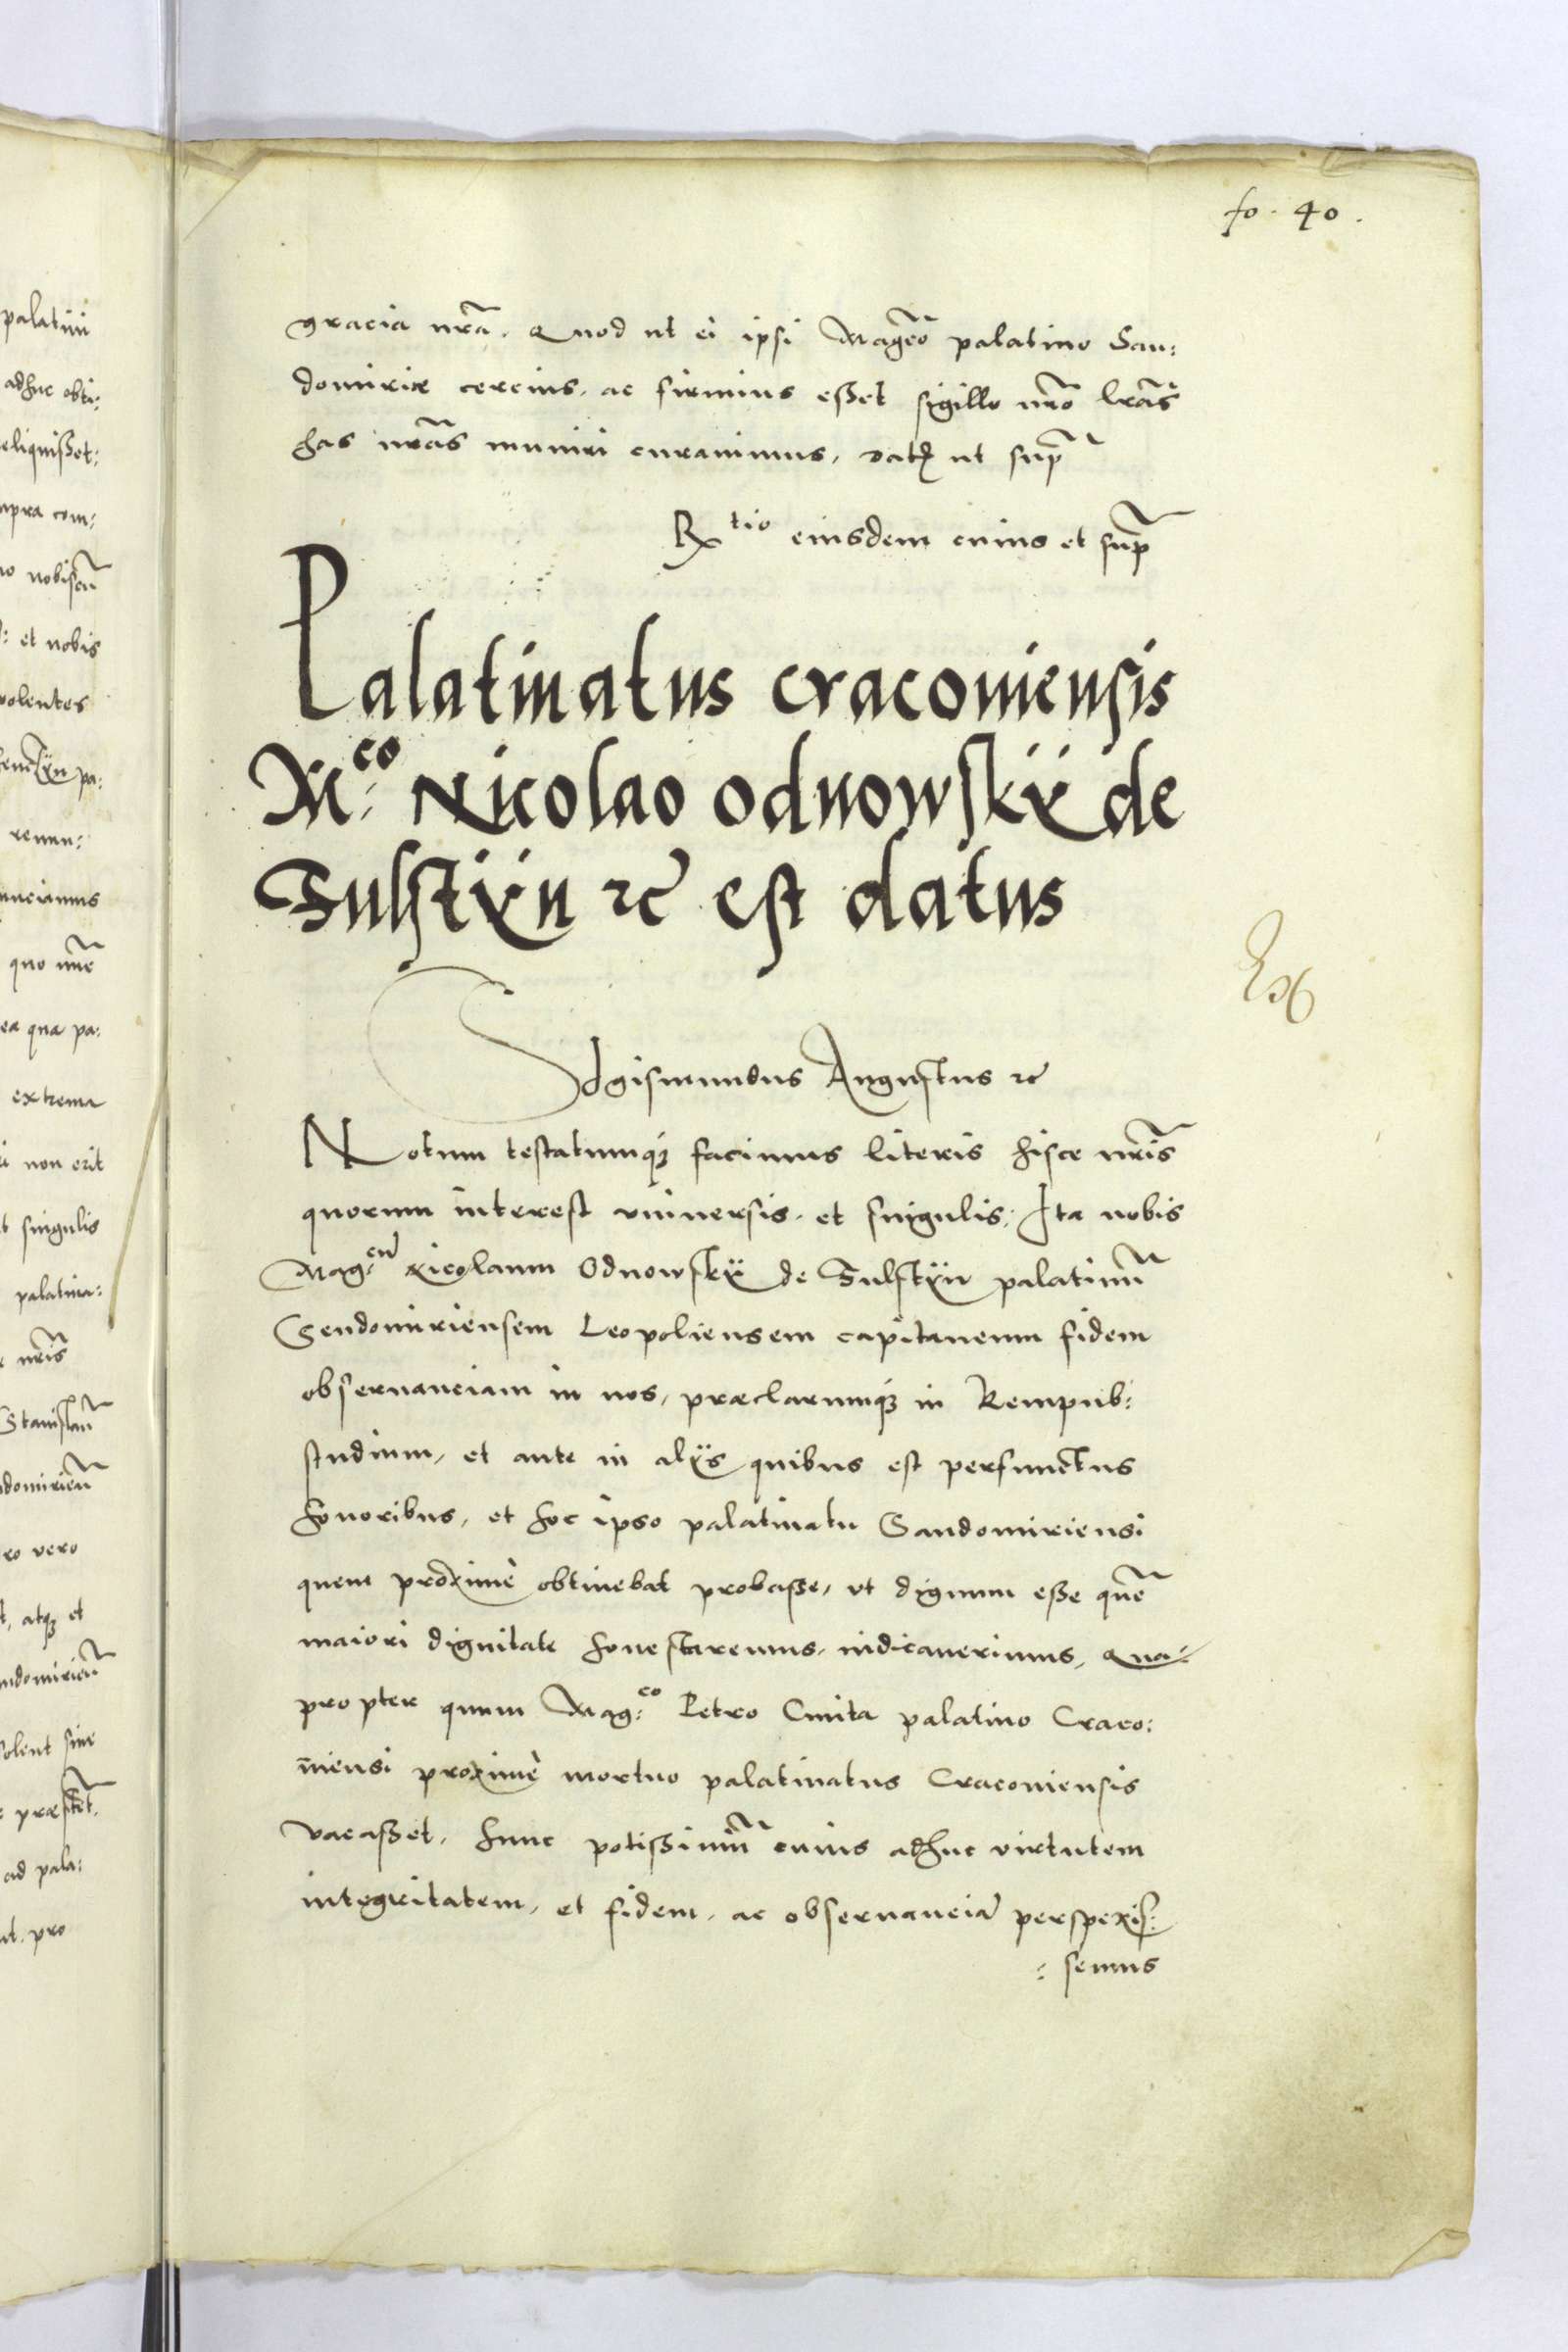 fo. 40.
gracia nrã. Quod ut ei ipsi Magcõ palatino San:
domiriæ cercius, ac firmius eßet sigillo nrõ lrãs
has nrãs muniri curavimus, dat ut supã
Rtio eiusdem cuius et supã
Palatinatus cracoviensis
M:co Nicolao odnowskÿ de
Fulstÿn &c est datus
Sdgismundus Augustus &c
Notum testatumq3 facimus literis hisce nrĩs
quorum interest vniuersis. et singulis. Ita nobis
Mag:cũ Nicolaum Odnowskÿ de Fulstÿn palatinũ
Sendomiriensem Leopoliensem capitaneum fidem
obseruanciam in nos, præclarumq3 in Rempub:
studium, et ante in alÿs quibus est perfunctus
honoribus, et hoc ipso palatinatu Sandomiriensi
quem proximè obtinebat probaße, vt dignum eße quẽ
maiori dignitate honestaremus, iudicauerimus, Qua:
propter quum Mag:co Petro Cmita palatino Craco:
niensi proximè mortuo palatinatus Cracouiensis
vacaßet, hunc potißimũ cuius adhuc virtutem
integritatem, et fidem, ac obseruanciã perspexis:
:semus
palatini
adhuc obti:
eliquißet:
upra com:
no nobiscũ
: et nobis
volentes
pa:
renun:
nunciamus
quo nunc
ea qua pa:
extrema
i non erit
t singulis
palatina:
nrĩs
Stanislaũ
ndomiriẽn
ro vero
t, atq3 et
ndomiriẽn
solent siue
ad pala:
nt. pro